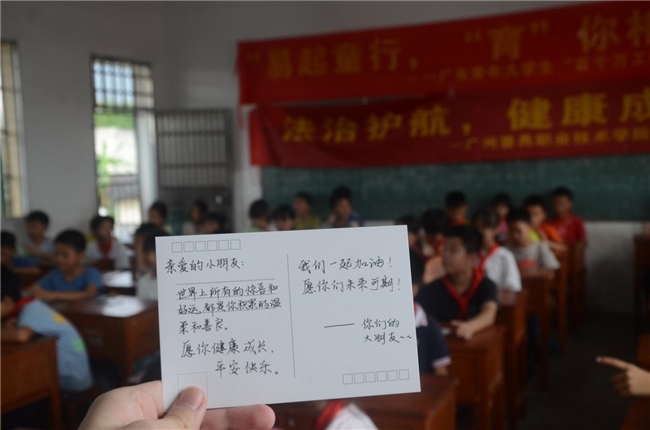 “易起童行，“育”你相
法治护航，健康成
亲爱的小朋友：
世界上所有的惊喜和
好运，都是你积累的温
柔和善良。
愿你健康成长，
平安快乐。
我们一起加油！
愿你们未来可期！
—— 你们的
大朋友~~